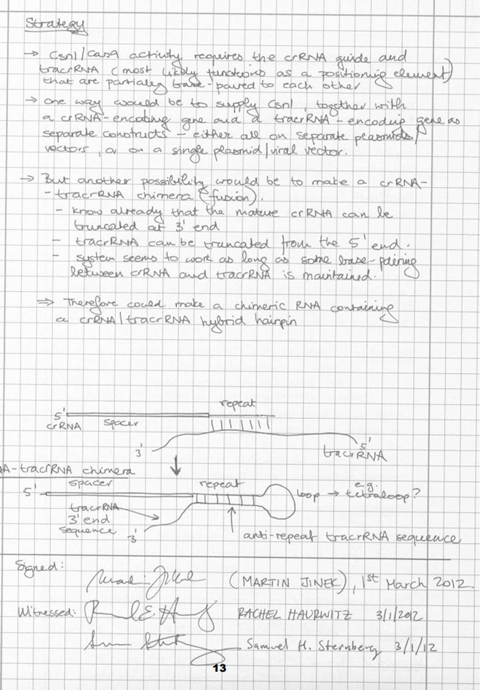 Strategy
→ Csn1/Cas9 activity requires the crRNA guide and
tracrRNA (most likely functions as a positioning element)
that are partially base-paired to each other
→ One way would be to supply Csn1, together with
a crRNA-encoding gene and a tracrRNA-encoding gene as
separate constructs - either all on separate plasmids/
vectors, or on a single plasmid/viral vector.
→ But another possibility would be to make a crRNA-
-tracrRNA chimera (fusion).
- know already that the mature crRNA can be
truncated at 3' end
- tracrRNA can be truncated from the 5' end.
- system seems to work as long as some base-pairing
between crRNA and tracrRNA is maintained.
⇒ Therefore could make a chimeric RNA containing
a crRNA/tracrRNA hybrid hairpin
repeat
5'
crRNA
spacer
3'
5'
tracrRNA
A-tracrRNA chimera
spacer
repeat
5'
loop → e.g. tetraloop?
tracrRNA
3' end
sequence
3'
anti-repeat tracrRNA sequence
Signed:
(MARTIN JINEK), 1st March 2012.
Witnessed:
RACHEL HAURWITZ 3/1/2012
Samuel H. Sternberg 3/1/12
13